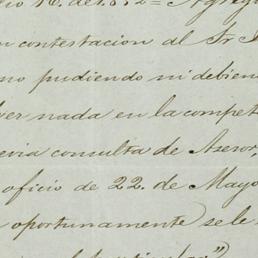 contestacion al Sr
no pudiendo ni debien
ver nada en la compet
evia consulta de Asesor,
oficio de 22. de Mayo
oportunamente) se le